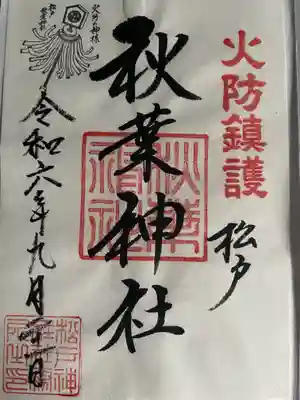 火防鎮護
松戸
秋葉神社
秋葉神社
火防の神様
令和六年九月
松戸神